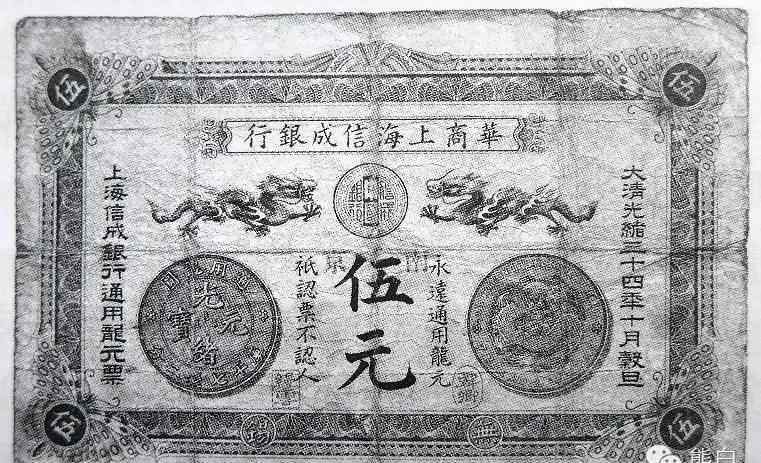 伍
伍
華商上海信成銀行
大清光緒三十四年十月穀旦
永遠通用龍元
伍元
祇認票不認人
上海信成銀行通用龍元票
光緒元寶
伍
伍
熊白